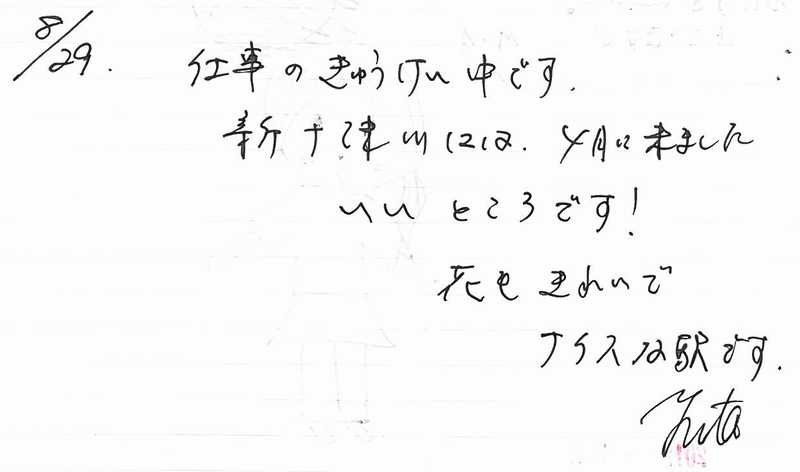 8/29.
仕事のきゅうけい中です.
新十津川には、4月に来ました
いいところです!
花もきれいで
ナイスな駅です.
Yuta